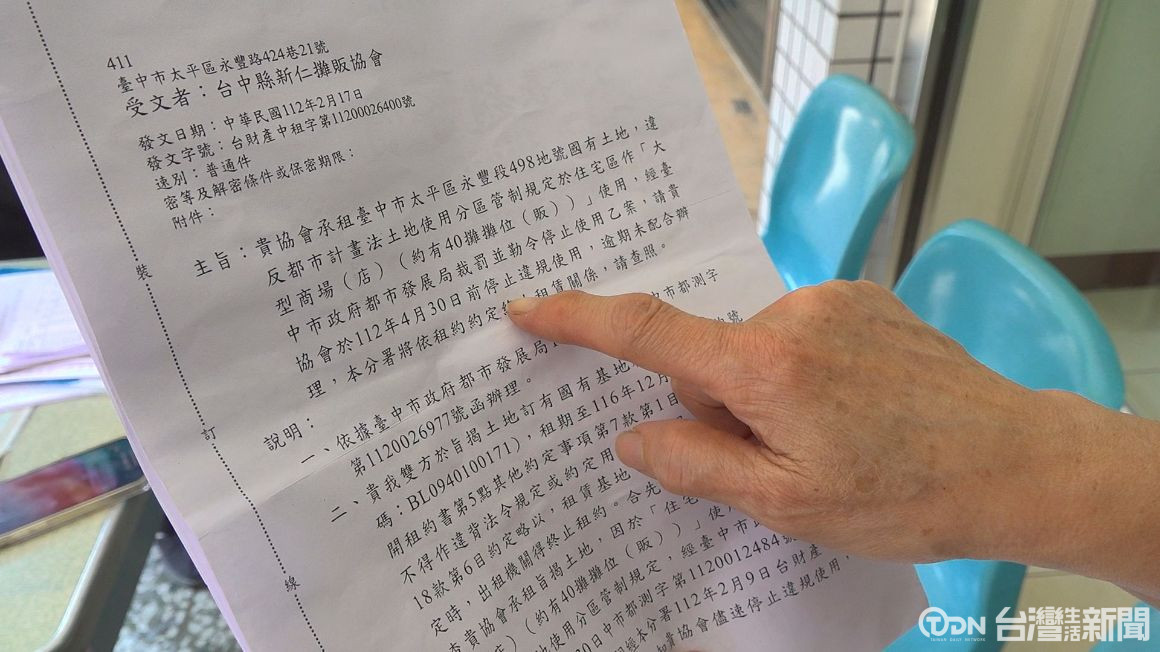 411
臺中市太平區永豐路424巷21號
受文者：台中縣新仁攤販協會
發文日期：中華民國112年2月17日
發文字號：台財產中租字第11200026400號
速別：普通件
密等及解密條件或保密期限：
附件：
主旨：貴協會承租臺中市太平區永豐段498地號國有土地，違
反都市計畫法土地使用分區管制規定於住宅區作「大
型商場（店）（約有40攤攤位（販））」使用，經臺
中市政府都市發展局裁罰並勒令停止使用乙案，請貴
協會於112年4月30日前停止違規使用，逾期未配合辦
理，本分署將依租約約定 租賃關係，請查照。
說明：
一、依據臺中市政府都市發展局 中市都測字
第1120026977號函辦理。
二、貴我雙方於旨揭土地訂有國有基地
碼：BL0940100171），租期至116年12月
開租約書第5點其他約定事項第7款第1目
不得作違背法令規定或約定用
18款第6目約定略以，租賃基地
定時，出租機關得終止租約。合先
查貴協會承租旨揭土地，因於「住宅
（店）（約有40攤攤位（販））」使
地使用分區管制規定，經臺中市政
30日中市都測字第1120012484號
經本分署112年2月9日台財產
貴協會儘速停止違規使用
裝
訂
線
TDN 台灣生活新聞
TAIWAN DAILY NETWORK